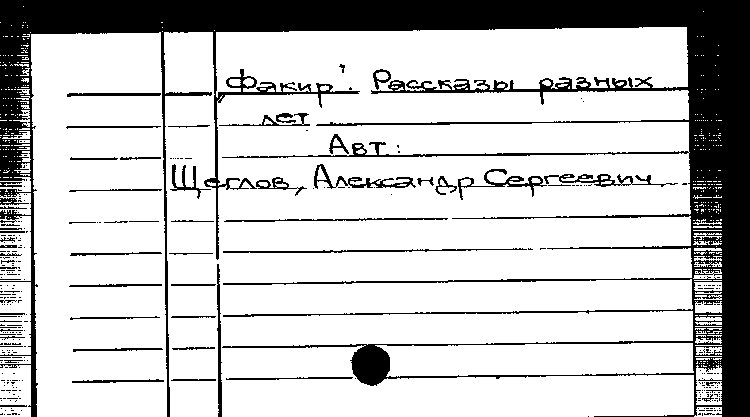 „Факир". Рассказы разных
лет
Авт.:
Щеглов, Александр Сергеевич.